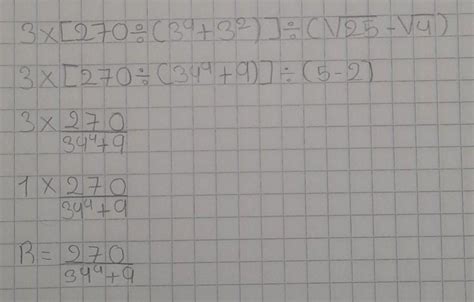 3×[270÷(3⁴+3²)]÷(√25-√4)
3×[270÷(34⁴+9)]÷(5-2)
3×270
34⁴+9
1×270
34⁴+9
R=270
34⁴+9